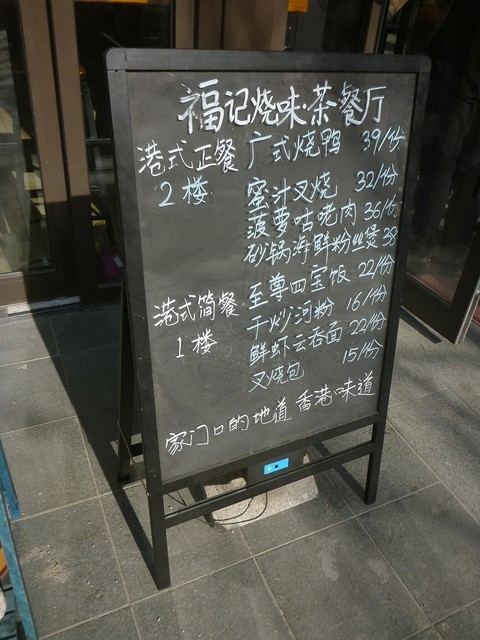 福记烧味·茶餐厅
港式正餐 广式烧鸭 39/份
2楼 蜜汁叉烧 32/份
菠萝咕咾肉 36/份
砂锅海鲜粉丝煲 38
港式简餐 至尊四宝饭 22/份
1楼 干炒河粉 16/份
鲜虾云吞面 22/份
叉烧包 15/份
家门口的地道 香港味道